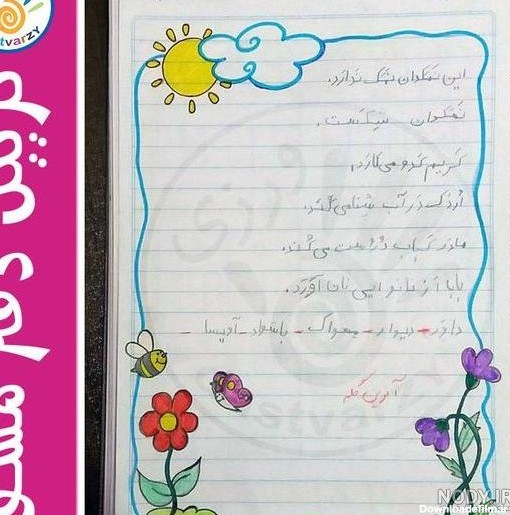 tvarzy
تزیین دفتر
این نمکدان نمک ندارد.
نمکدان شکست.
کریم کدو می‌کارد.
اردک در آب شنا می‌کند.
مادر کباب درست می‌کند.
بابا از نانوایی نان آورد.
داور - دیوار - مسواک - باسواد -
گلم
NODY.IR
Downloadefilm.ir